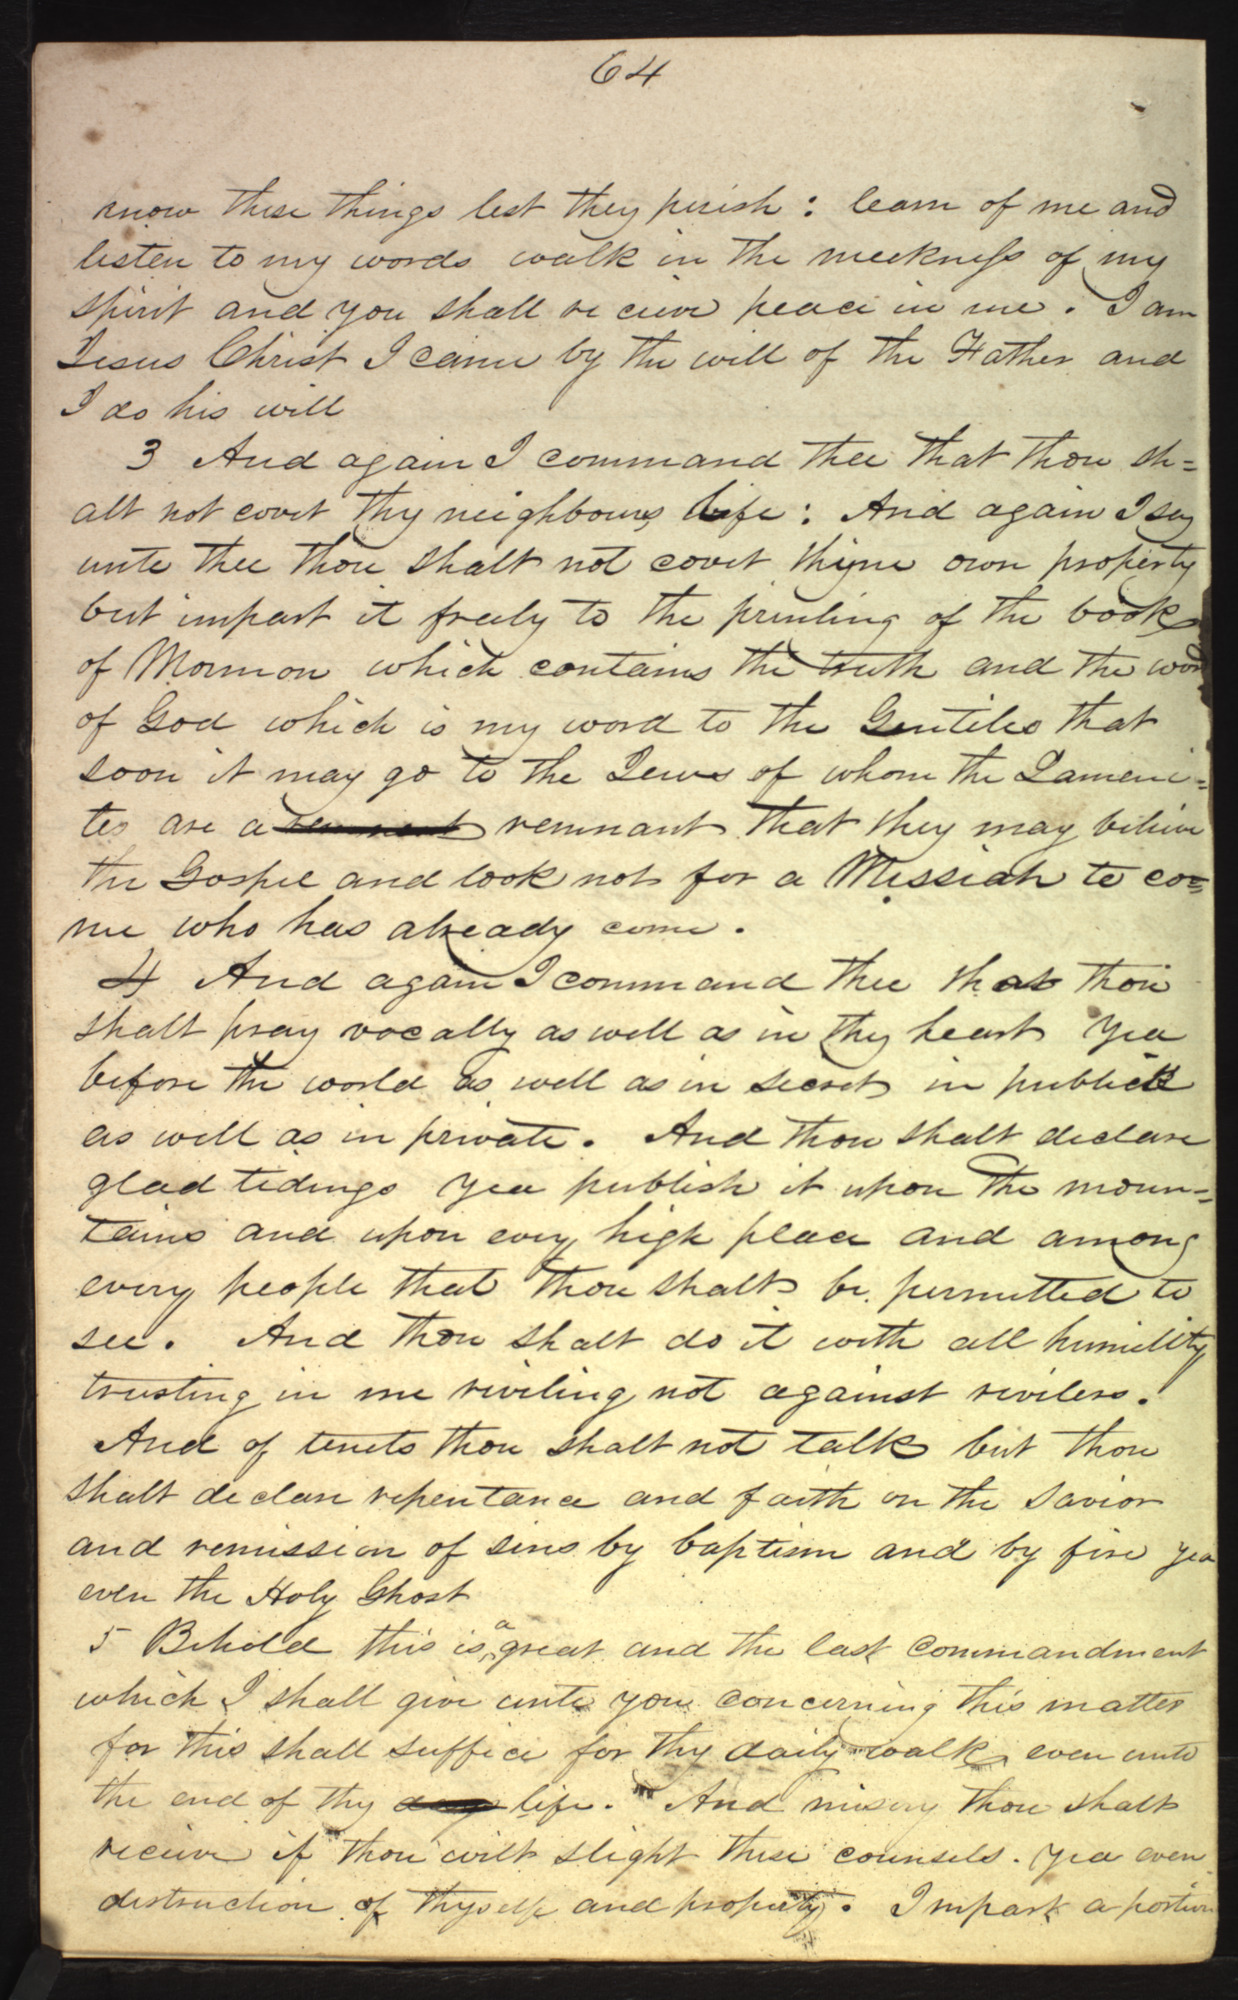 64
know these things lest they perish: learn of me and
listen to my words walk in the meekness of my
spirit and you shall re cieve peace in me. I am
Jesus Christ I came by the will of the Father and
I do his will
3 And again I command thee that thou sh=
alt not covet thy neighbours life: And again I say
unto thee thou shalt not covet thyne own property
but impart it freely to the printing of the book
of Mormon which contains the truth and the word
of God which is my word to the Gentiles that
soon it may go to the Jews of whom the Lameni=
tes are a remnant that they may believe
the Gospel and look not for a Messiah to co=
me who has already come.
4 And again I command thee that thou
shalt pray vocally as well as in thy heart Yea
before the world as well as in secret in publick
as well as in private. And thou shalt declare
glad tidings Yea publish it upon the moun=
tains and upon every high place and among
every people that thou shalt be permitted to
see. And thou shalt do it with all humility
trusting in me reviling not against revilers.
And of tenets thou shalt not talk but thou
shalt declare repentance and faith on the Savior
and remission of sins by baptism and by fire yea
even the Holy Ghost
5 Behold this is a great and the last commandment
which I shall give unto you concerning this matter
for this shall suffice for thy daily walk even unto
the end of thy life. And misery thou shalt
receive if thou wilt slight these counsels. Yea even
destruction of thyself and property. Impart a portion